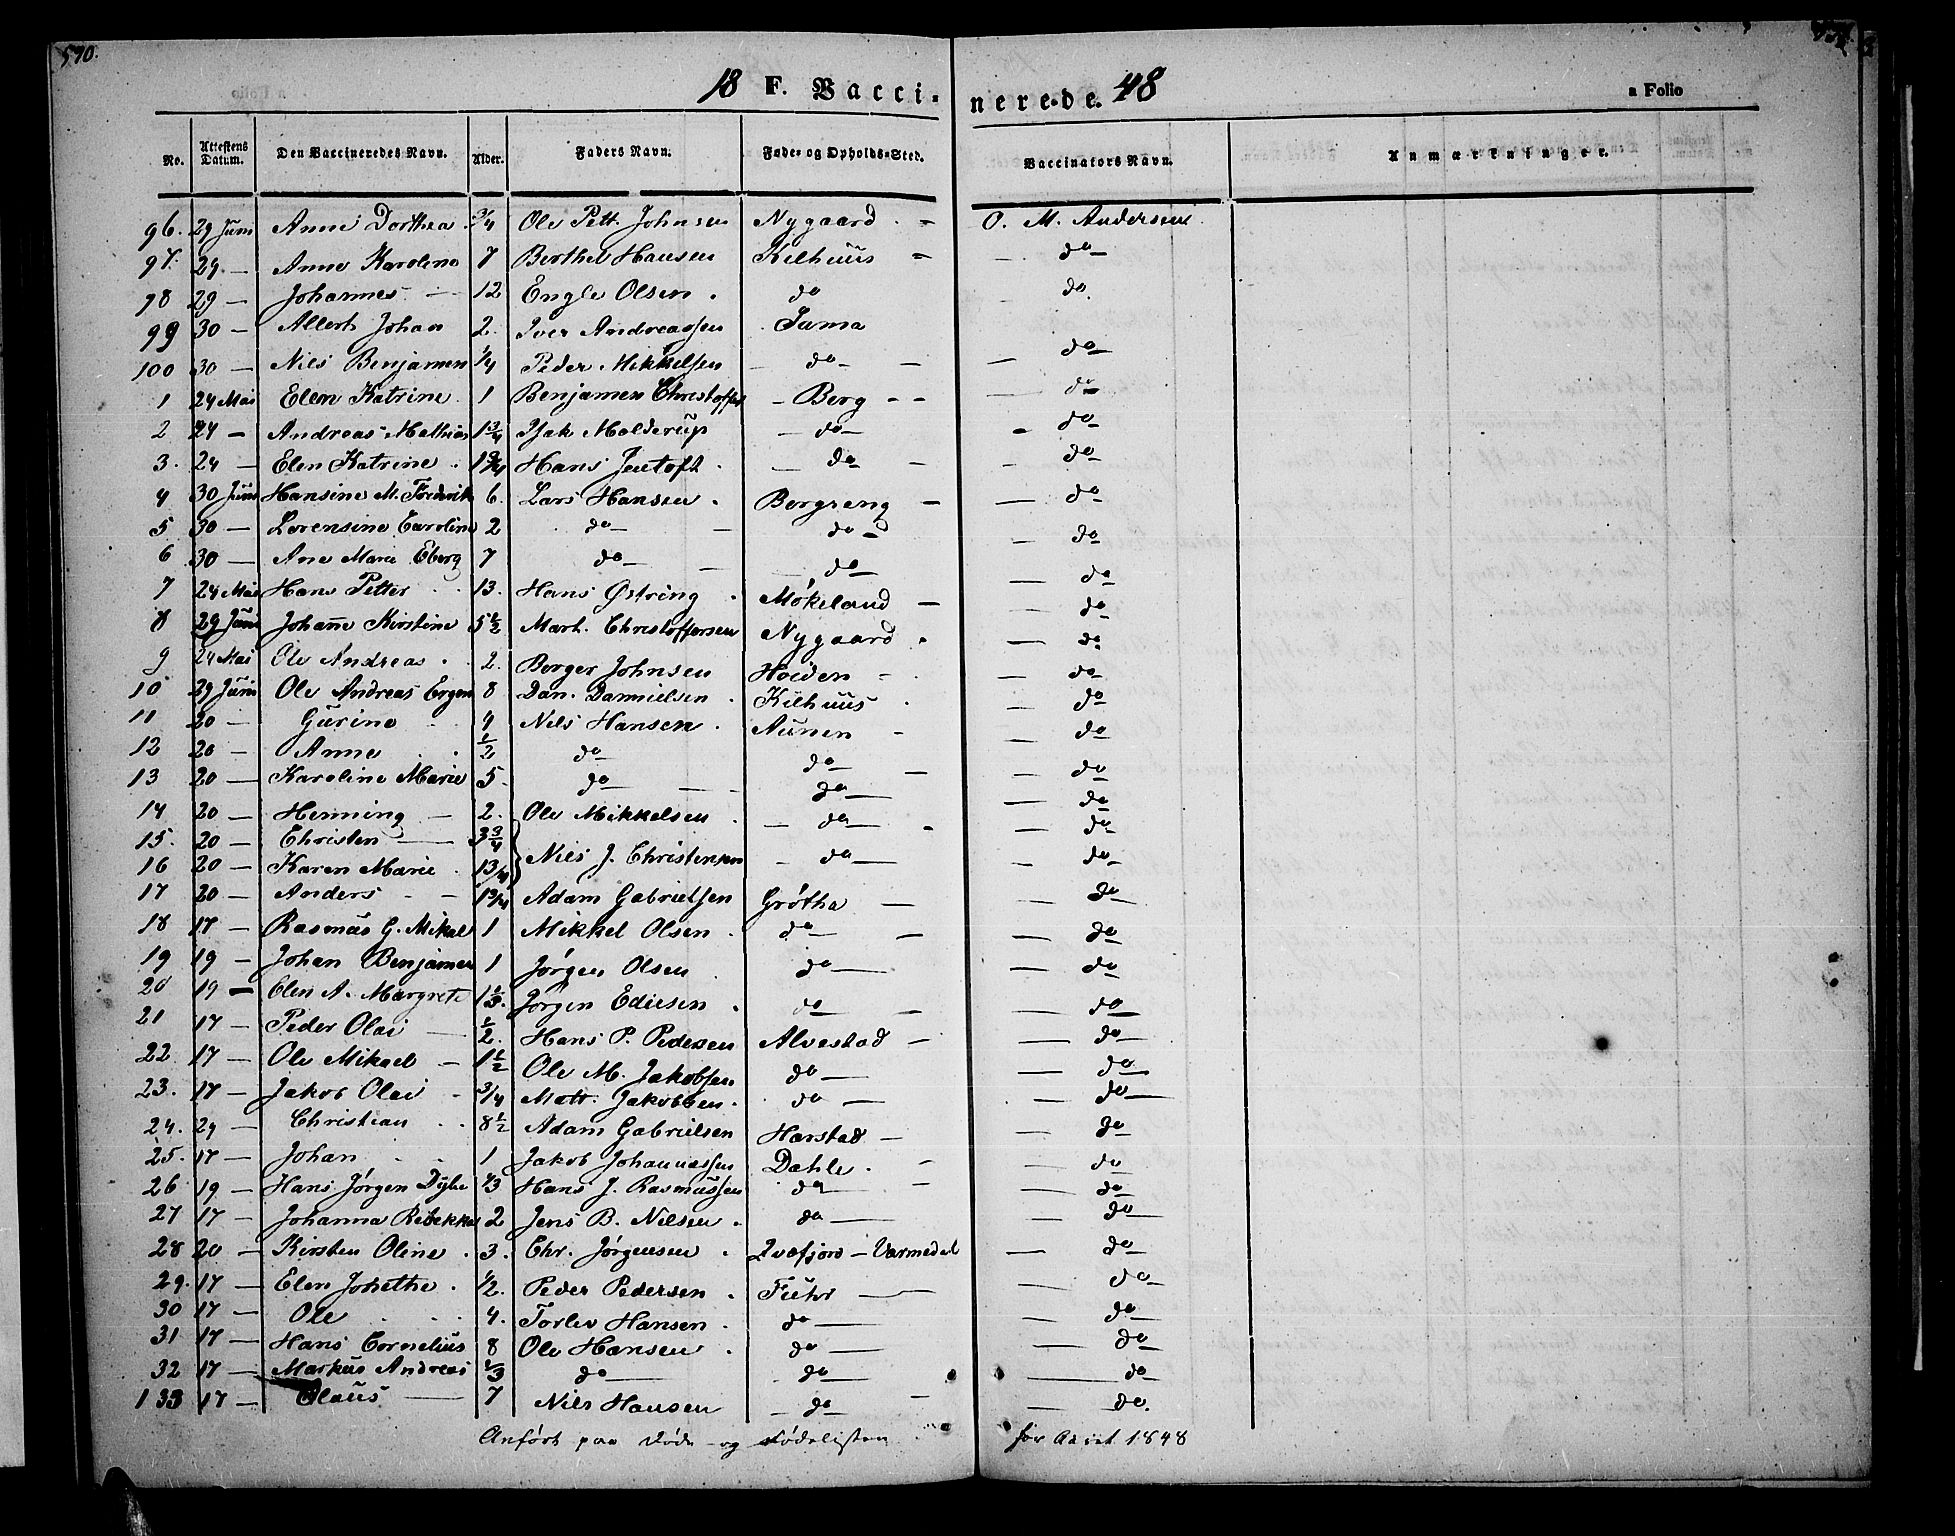 590.
18 F. Vacci- nerede. 48 a Folio
No. Attestens Datum. Den Vaccineredes Navn. Alder. Faders Navn. Føde- og Opholds-Sted. Vaccinators Navn. Anmærkninger.
96. 29 Juni Anne Dorthea 3/4 Ole Pett. Johnsen Nygaard O. M. Andersen
97. 29 — Anne Karoline 7 Berthel Hansen Kilhuus — do
98 29 — Johannes — 12 Engle Olsen do do
99 30 — Allert Johan 2. Iver Andreassen
100 30 — Nils Benjamen 1/4 Peder Mikkelsen do — — do
1 24 Mai Elen Katrine 1 Benjamen Christoffer — Berg — — do
2 24 — Andreas Mathias 1 3/4 Isak Molderup — do — — do
3. 24 — Elen Katrine 1 3/4 Hans Jentoft — do — — do
4 30 Juni Hansine M. Fredrik 6. Lars Hansen Bergseng — — do
5 30 — Lorensine Caroline 2 do — — do — do
6 30 — Ane Marie Eberg 7 do — — do — do
7 24 Mai Hans Petter 13. Hans Østring Møkeland — — do
8 29 Juni Johanne Kirstine 5 1/2 Mart. Christoffersen Nygaard — do
9 24 Mai Ole Andreas 2. Berger Johnsen — do
10 29 Juni Ole Andreas 8 Dan. Danielsen Kilhuus — do
11 20 — Gurine 4 Nils Hansen Aunen — — do
12 20 — Anne 1/2 do do — — do
13 20 — Karoline Marie 5. do — — do — — do
14 20 — Henning — 2. Ole Mikkelsen — do — — do
15. 20 — Christen — 3 3/4
16 20 — Karen Marie 1 3/4 Nils J. Christensen — do — — do
17 20 — Anders 1 3/4 Adam Gabrielsen Grøtha — — do
18 17 — Rasmus G. Mikal 1 Mikkel Olsen do — — do
19 19 — Johan Benjamen 1 Jørgen Olsen do — — do
20 19 — Elen A. Margrete 1 1/3. Jørgen Ediesen do — — do
21 17 — Peder Olai — 1/2. Hans P. Pedersen Alvestad — — do
22 17 — Ole Mikael — 1 1/2 Ole M. Jakobsen do — — do
23. 17 — Jakob Olai 3/4 Matt. Jakobsen do — do —
24. 29 — Christian 8 1/2 Adam Gabrielsen Harstad — — do
25. 17 — Johan 1 Jakob Johannessen Dahle — do
26 19 — Hans Jørgen 1/3 Hans J. Rasmussen do — — do
27 17 — Johanna Rebekka 2 Jens B. Nilsen do — — do
28 20 — Kirsten Oline 3. Chr. Jørgensen Qvæfjord — Varmedal — do
29. 17 — Elen Johethe 1/2. Peder Pedersen — do
30 17 — Ole 4. Torlev Hansen do — — do
31 17 — Hans Cornelius 8 Ole Hansen do — — do
32 17 — Markus Andreas 1/3 do — do — — do
133 17 — Olaus — 7 Nils Hansen — do — — do.
Anført paa Døde- og Fødelisten for Aaret 1848